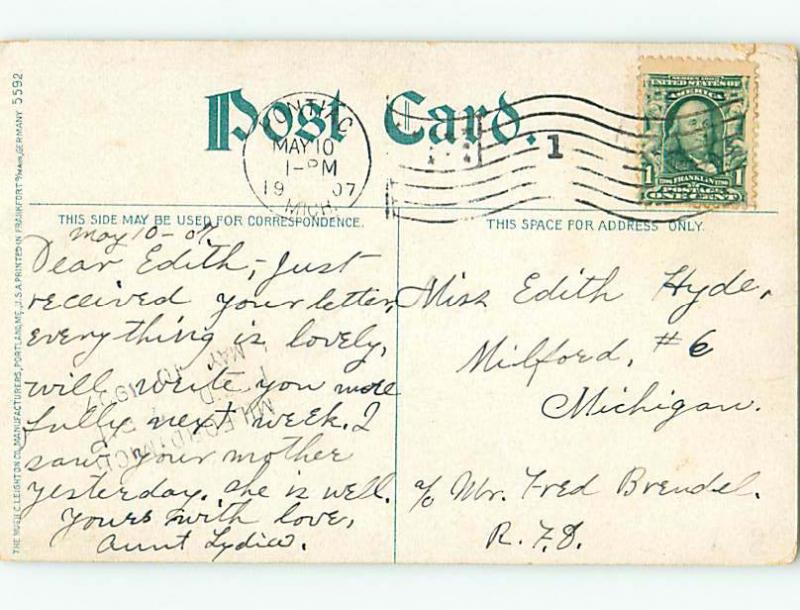 Post Card.
PONTIAC
MAY 10
1-PM
19 07
MICH.
1
SERIES 1902
UNITED STATES OF
AMERICA
1 FRANKLIN 1
POSTAGE
ONE CENT
THIS SIDE MAY BE USED FOR CORRESPONDENCE.
THIS SPACE FOR ADDRESS ONLY.
May 10-07
Dear Edith,- Just
received your letter,
everything is lovely,
will write you more
fully next week. I
saw your mother
yesterday. She is well.
Yours with love,
Aunt Lydia.
Miss Edith Hyde,
Milford, #6
Michigan.
c/o Mr. Fred Brendel.
R. F. D.
MILFORD, MICH.
R.F.D.
MAY 10 1907
THE HUGH C. LEIGHTON CO., MANUFACTURERS, PORTLAND, ME., U.S.A. PRINTED IN FRANKFORT o/MAIN, GERMANY 5592